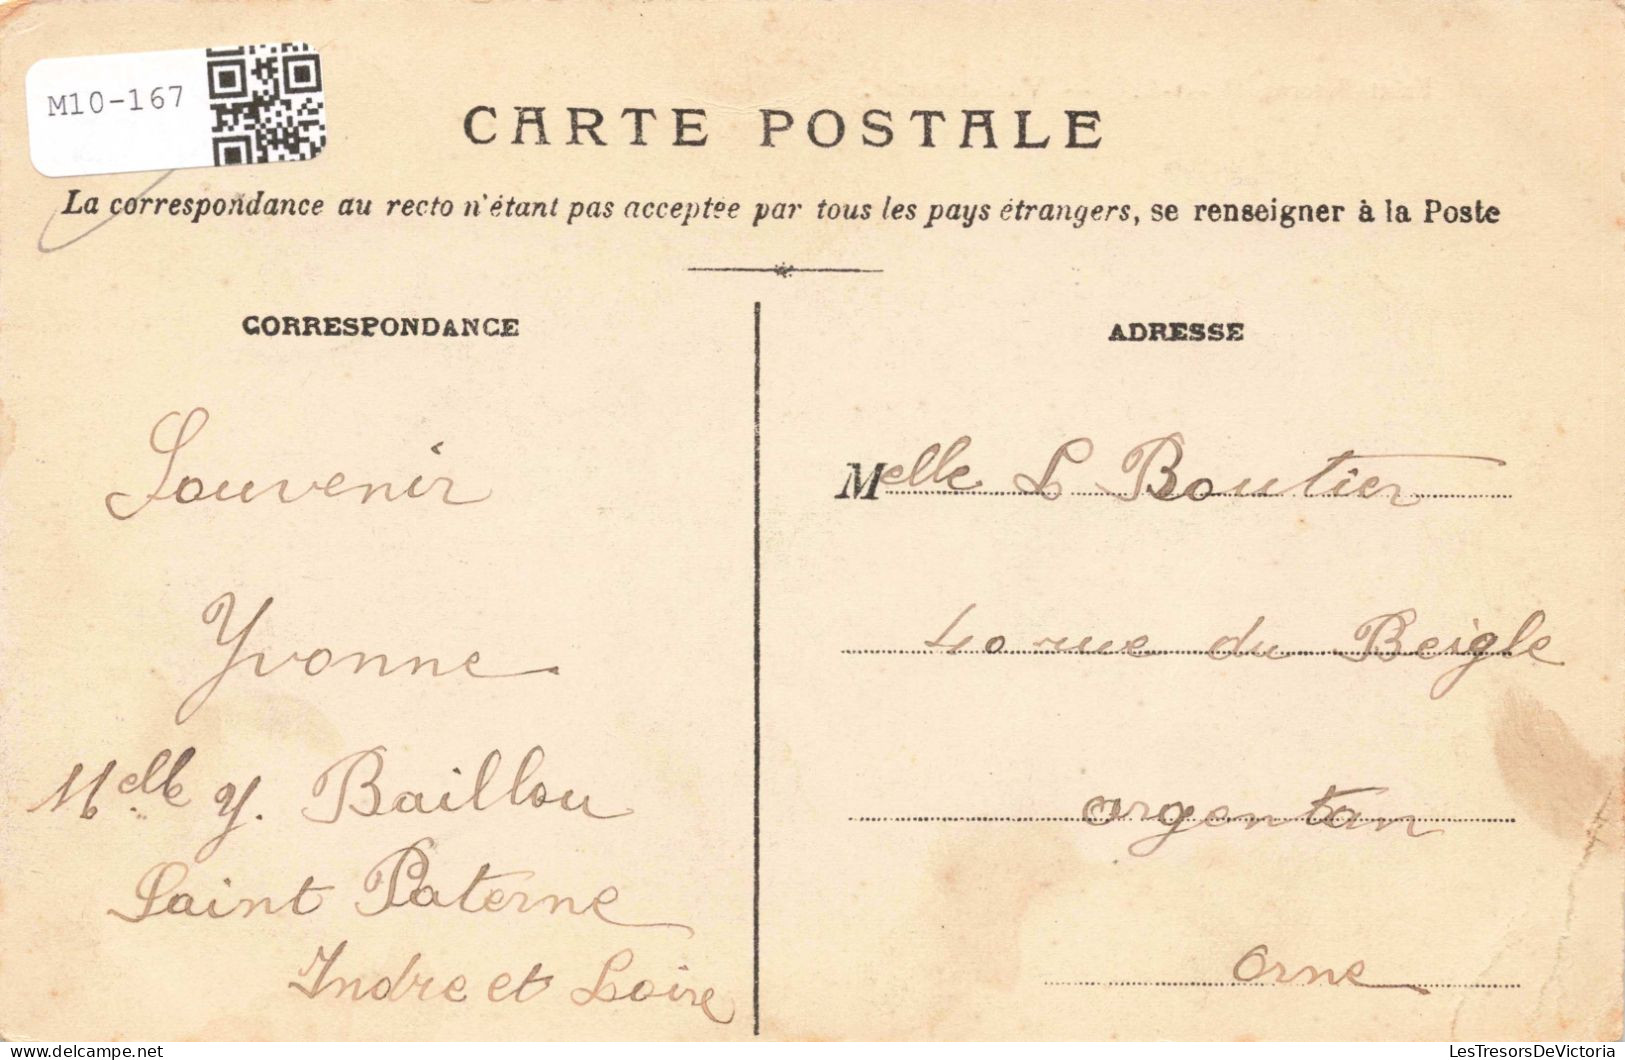 M10-167
CARTE POSTALE
La correspondance au recto n'étant pas acceptée par tous les pays étrangers, se renseigner à la Poste
CORRESPONDANCE
Souvenir
Yvonne
Melle Y. Baillou
Saint Paterne
Indre et Loire
ADRESSE
Melle L Boutier
40 rue du Beigle
argentan
Orne
LesTresorsDeVictoria